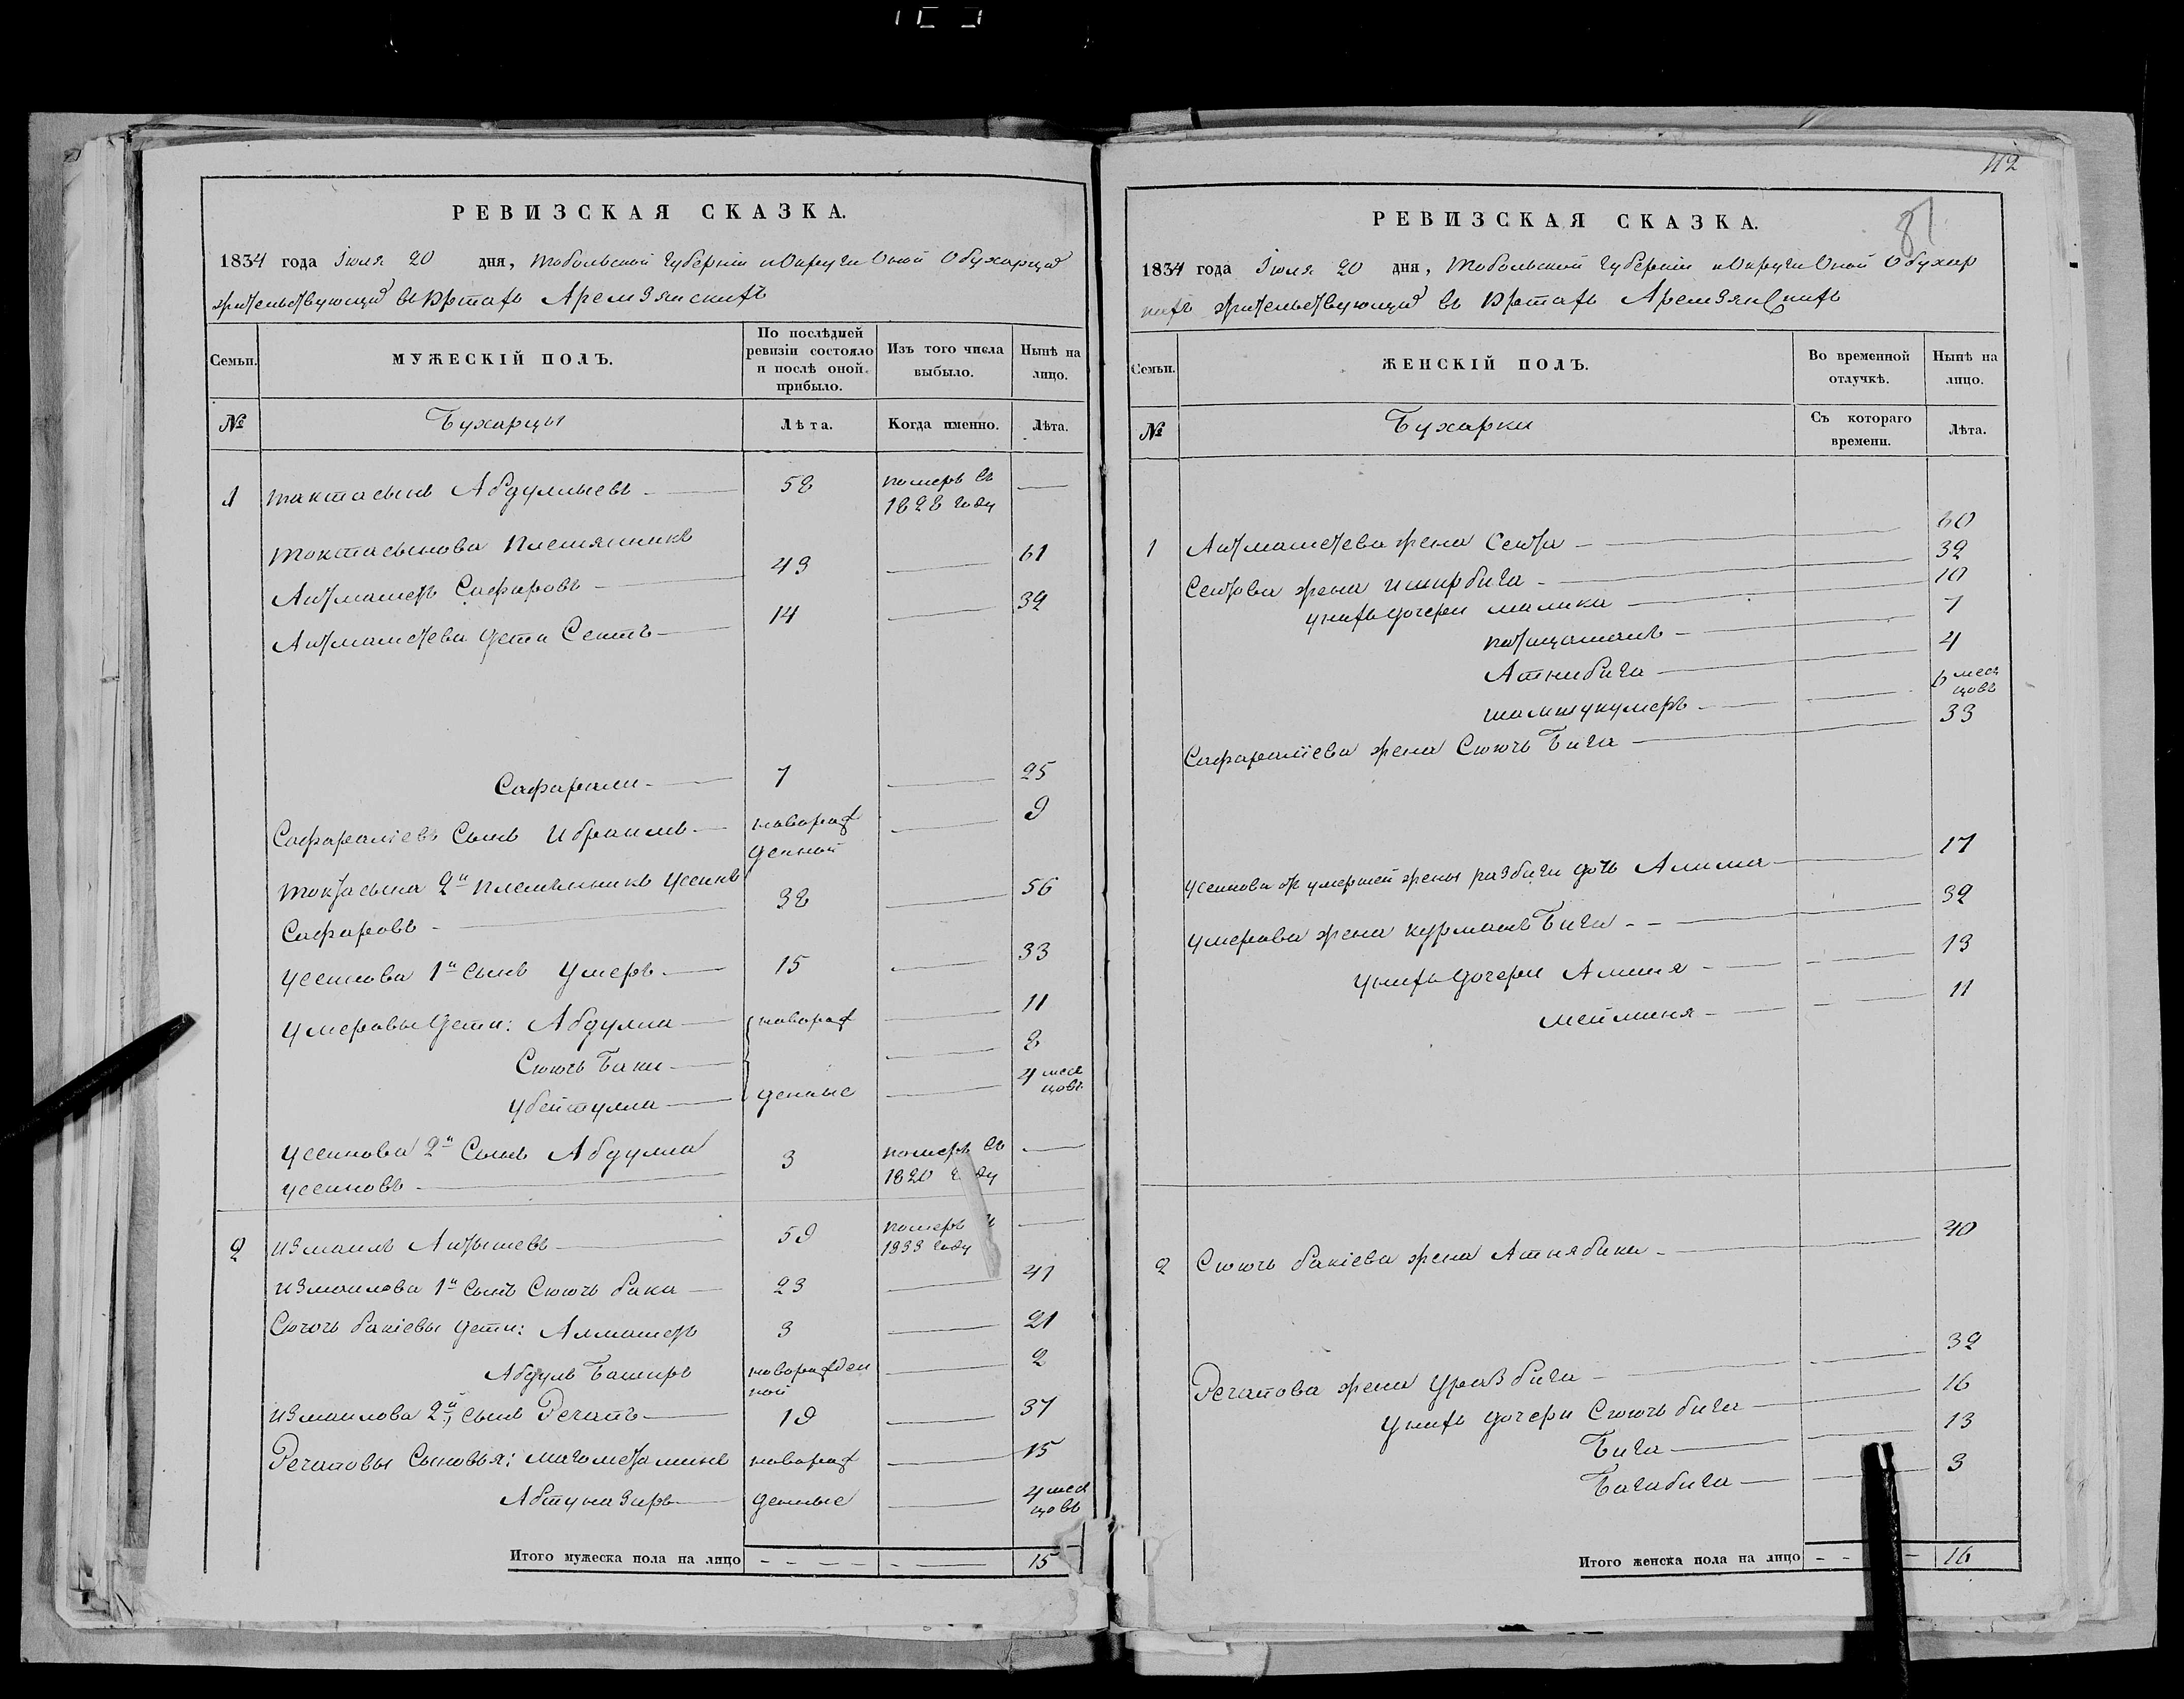 РЕВИЗСКАЯ СКАЗКА.
1834 года Іюля 20 дня, Тобольской Губерніи и Округи Оной О бухарцах
жительствующих въ Юртахъ Аремзянскихъ
Семьи.
МУЖЕСКІЙ ПОЛЪ.
По послѣдней ревизіи состояло и послѣ оной прибыло.
Изъ того числа выбыло.
Нынѣ на лицо.
№
Бухарцы
Лѣта.
Когда именно.
Лѣта.
1 Токтасынъ Абдуллыевъ 58 померъ въ
1828 году
Токтасынова Племянникъ
Аитмаметь Сафаровъ 49 61
Аитмаметева дети Сеитъ 14 32
Сафарали 7 25
Сафаралiевъ Сынъ Ибраимъ новорож
денной 9
Токтасына 2й племянникъ Усеинъ
Сафаровъ 38 56
Усеинова 1й сынъ Умеръ 15 33
Умеровы дети: Абдулла новорож 11
Сюючь Баки 8
Убейтулла денные 4 меся
цовъ
Усеинова 2й Сынъ Абдулла 3 померъ въ
Усеиновъ 1820 году
2 Измаилъ Аитышевъ 59 померъ
1833 году
Измаилова 1й сынъ Сюючь бака 23 41
Сюючь бакіевы дети: Алмаметь 3 21
Абдулъ Баширъ новорожден
ной 2
Измаилова 2й, сынъ Речапъ 19 37
Речаповы Сыновья: Магометаминъ новорож 15
Абтуназиръ денные 4 меся
цовъ
Итого мужеска пола на лицо 15
112
81
РЕВИЗСКАЯ СКАЗКА.
1834 года Іюля 20 дня, Тобольской Губерніи и Округи Оной О бухар
кахъ жительствующих въ Юртахъ Аремзянскихъ
Семьи.
ЖЕНСКІЙ ПОЛЪ.
Во временной отлучкѣ.
Нынѣ на лицо.
№
Бухарки
Съ котораго времени.
Лѣта.
1 Аитмаметева жена Сеита 60
Сеитова жена Ишир бига 32
У нихъ дочери Малика 10
7
Атнибига 4
Шамшукумеръ 6 меся
цовъ
Сафаралiева жена Сюючь Бига 33
Усеинова умершей жены разбиги дочь Алима 17
Умерова жена Курманъ Бига 32
У нихъ дочери Амина 13
Меймина 11
2 Сюючь бакіева жена Атнябика 40
Речапова жена Уразбига 32
У нихъ дочери Сюючь бига 16
Бига 13
Багабига 3
Итого женска пола на лицо 16